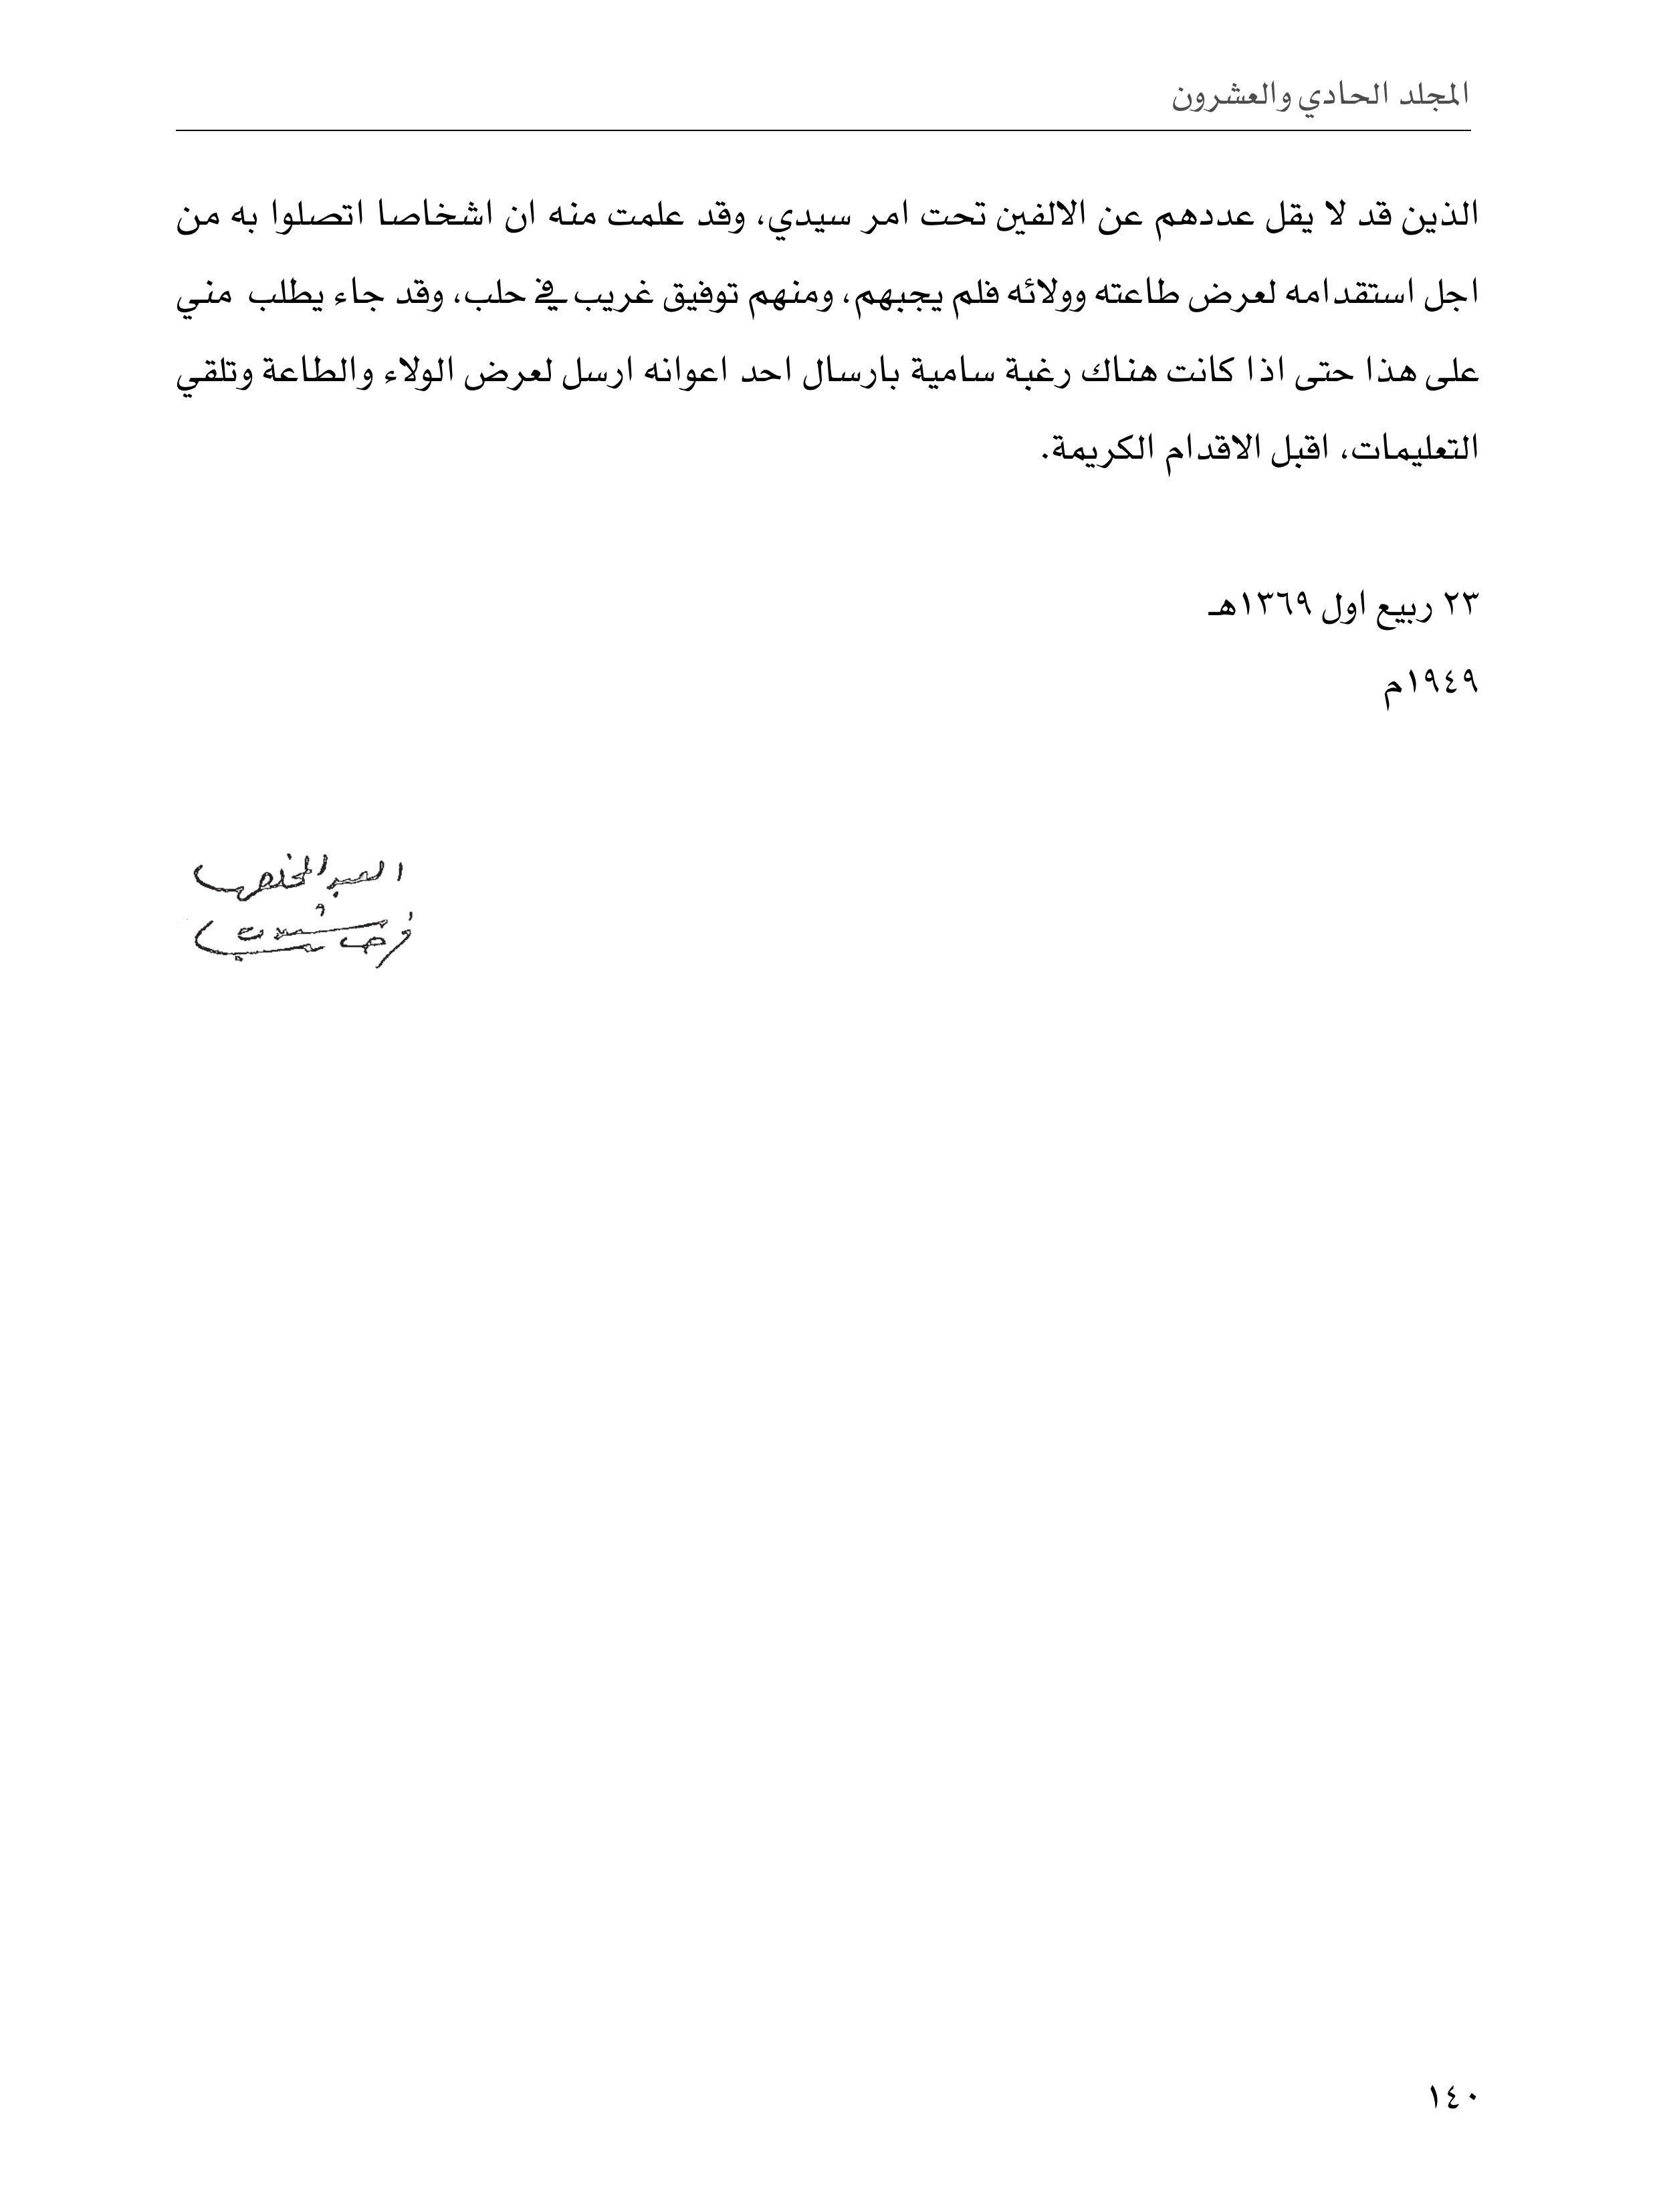 المجلد الحادي والعشرون
الذين قد لا يقل عددهم عن الالفين تحت امر سيدي، وقد علمت منه ان اشخاصا اتصلوا به من
اجل استقدامه لعرض طاعته وولائه فلم يجبهم، ومنهم توفيق غريب في حلب، وقد جاء يطلب مني
على هذا حتى اذا كانت هناك رغبة سامية بارسال احد اعوانه ارسل لعرض الولاء والطاعة وتلقي
التعليمات، اقبل الاقدام الكريمة.
٢٣ ربيع اول ١٣٦٩هـ
١٩٤٩م
العبد المخلص
١٤٠